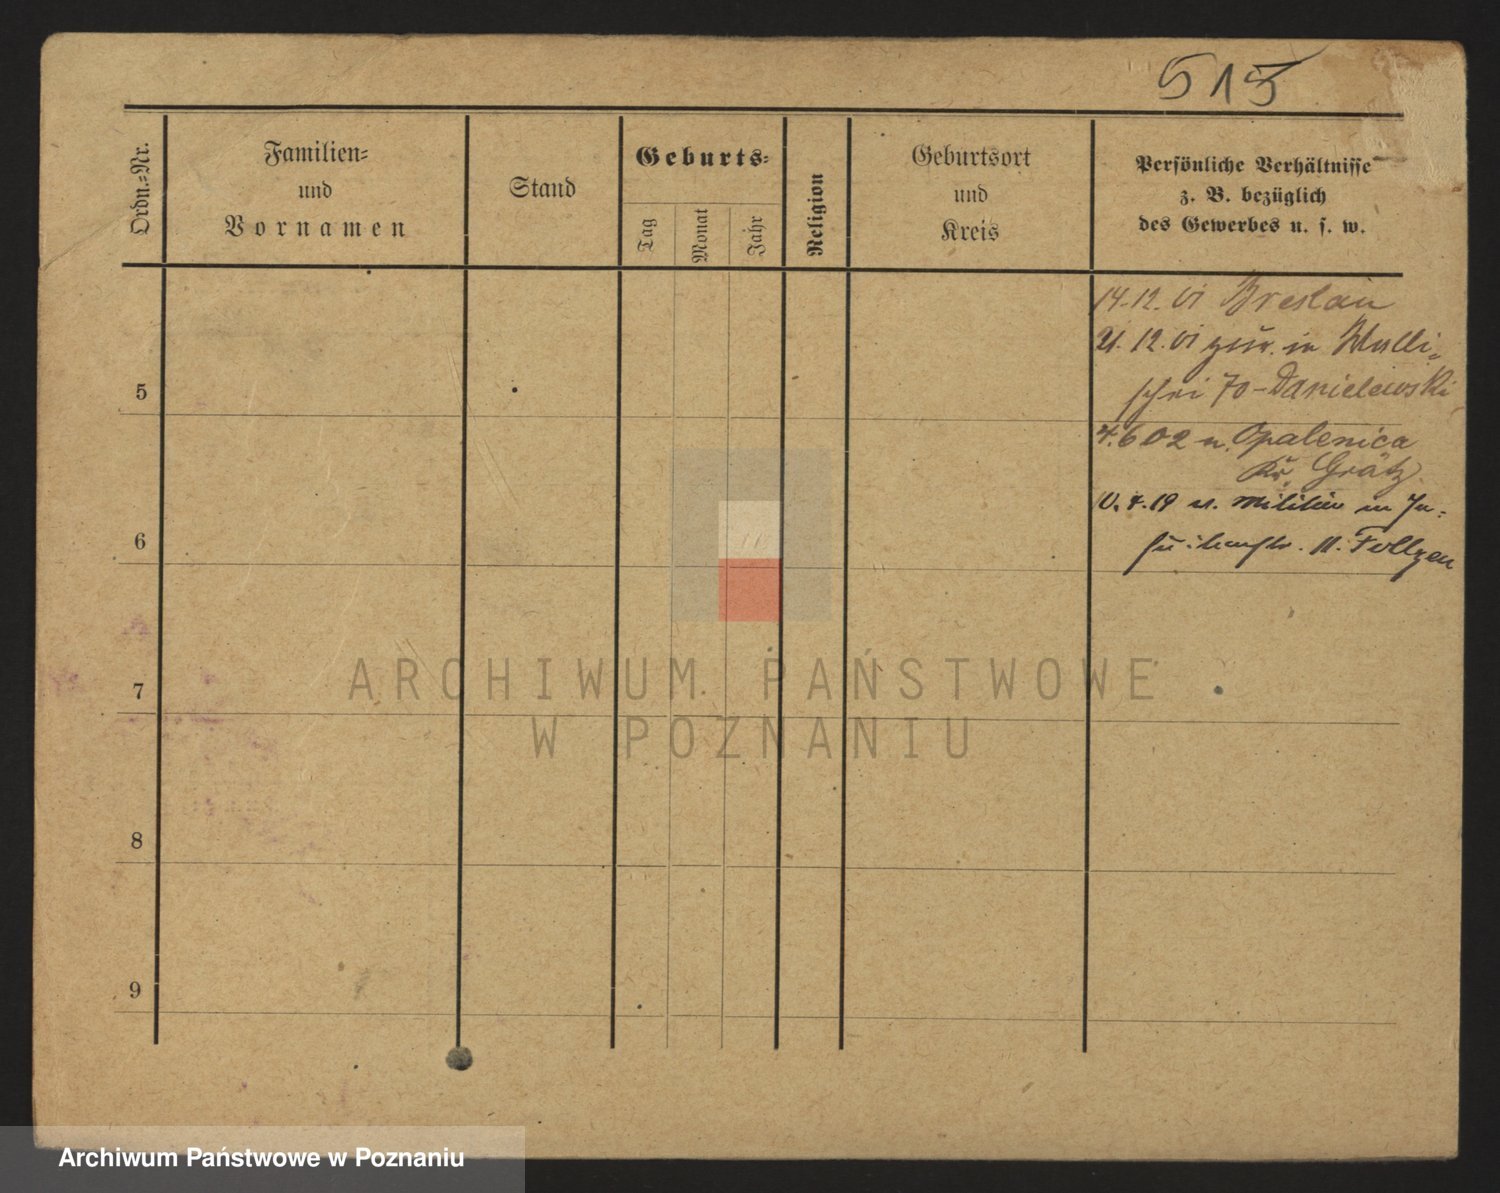 515
Ordn.-Nr.
Familien-
und
Vornamen
Stand
Geburts-
Tag
Monat
Jahr
Religion
Geburtsort
und
Kreis
Persönliche Verhältnisse
z. B. bezüglich
des Gewerbes u. s. w.
14.12.01 Breslau
21.12.01 zur. in Walli-
schei 70 - Danielewski
4.6 02 n. Opalenica
Kr. Grätz
4.19 in
11.
5
6
7
8
9
ARCHIWUM PAŃSTWOWE
W POZNANIU
Archiwum Państwowe w Poznaniu